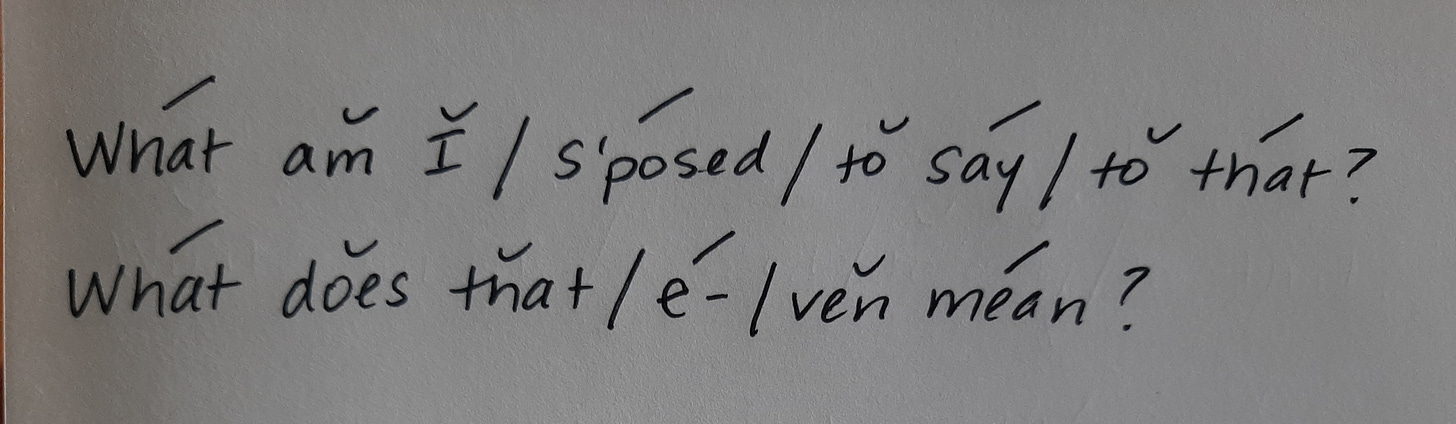 Whát am̆ Ĭ / s'pósed / tŏ sáy / tŏ thát?
Whát dŏes th̆at / é- / vĕn méan?